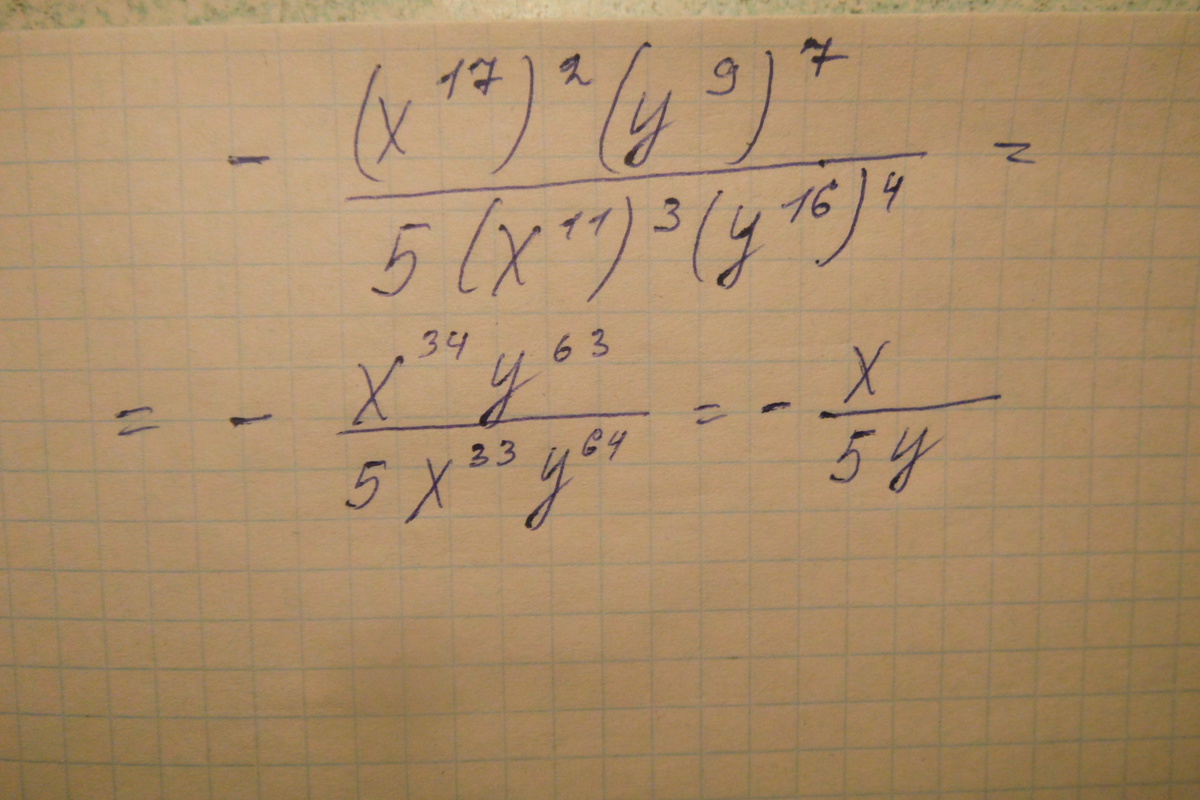 - (x^17)^2 (y^9)^7 / 5 (x^11)^3 (y^16)^4 =
= - x^34 y^63 / 5 x^33 y^64 = - x / 5y